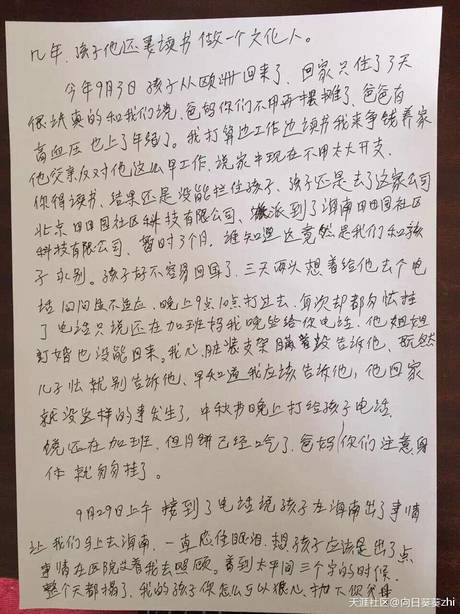 几年，孩子他还要读书做一个文化人。
今年9月3日孩子从欧洲回来了、回家只住了3天
很认真的和我们说，爸妈你们不用再摆摊了、爸爸有
高血压也上了年纪了。我打算边工作边读书我来争钱养家
他父亲反对他这么早工作、说家中现在不用太大开支、
你得读书、结果还是没能拦住孩子、孩子还是去了这家公司
北京田田园社区科技有限公司、派到了海南田田园社区
科技有限公司、暂时3个月、谁知道这竟然是我们和孩
子永别。孩子好不容易回国了、三天两头想着给他去个电
话问问适不适应、晚上9点10点打过去、每次却都匆忙挂
了电话只说还在加班妈我晚些给你电话、他姐姐
订婚也没能回来。我心脏装支架瞒着没告诉他、既然
儿子忙就别告诉他、早知道我应该告诉他，他回家
就没这样的事发生了，中秋节晚上打给孩子电话、
说还在加班、但月饼已经吃了、爸妈你们注意身
体就匆匆挂了。
9月29日上午接到了电话说孩子在海南出了事情
让我们马上去海南、一直忍住眼泪、想孩子应该是出了点
事情在医院等着我去照顾。看到太平间三个字的时候、
整个天都塌了、我的孩子你怎么可以狠心、抛下你父母
天涯社区@向日葵葵zhi